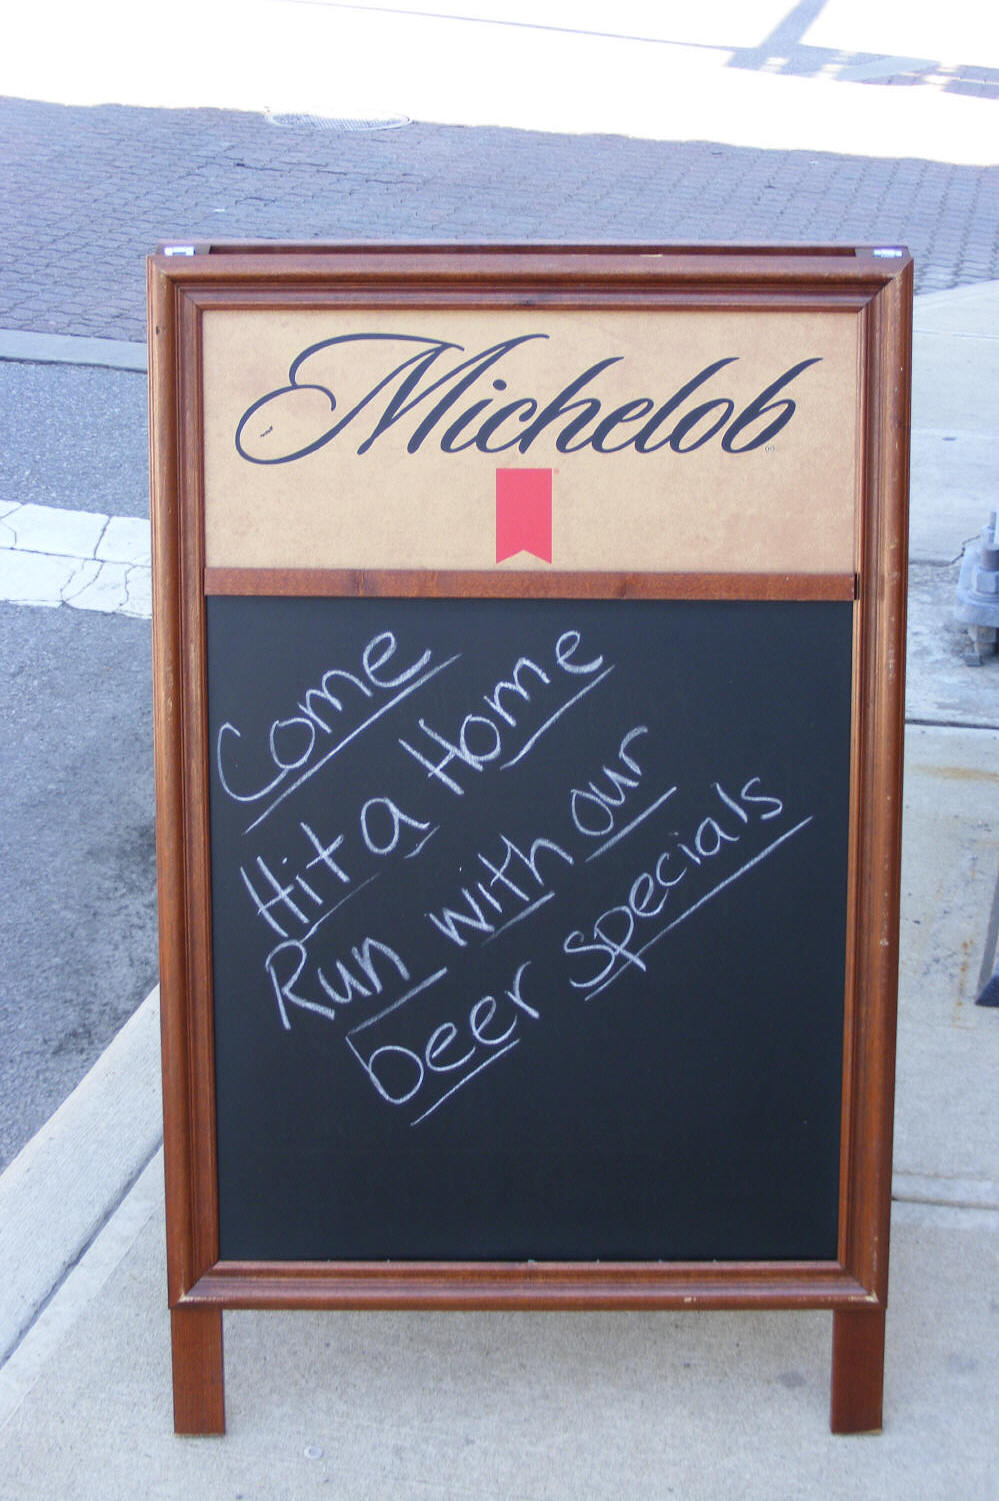 Michelob
Come
Hit a Home
Run with our
beer specials